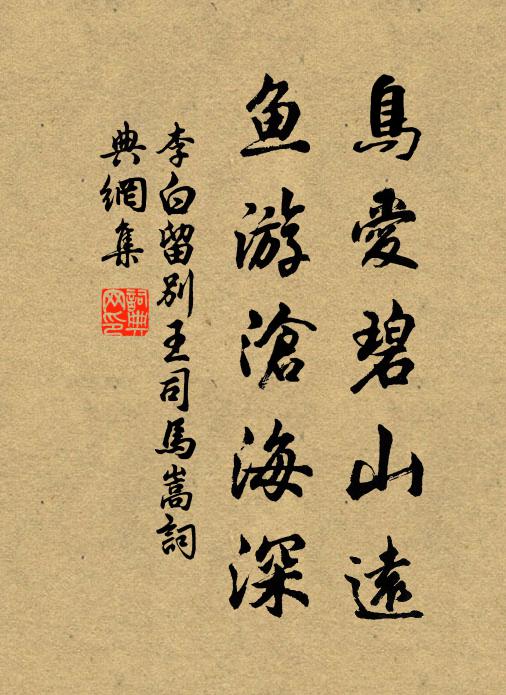 鳥愛碧山遠
魚游滄海深
李白留别王司馬嵩詞
典網集
詞典
网印